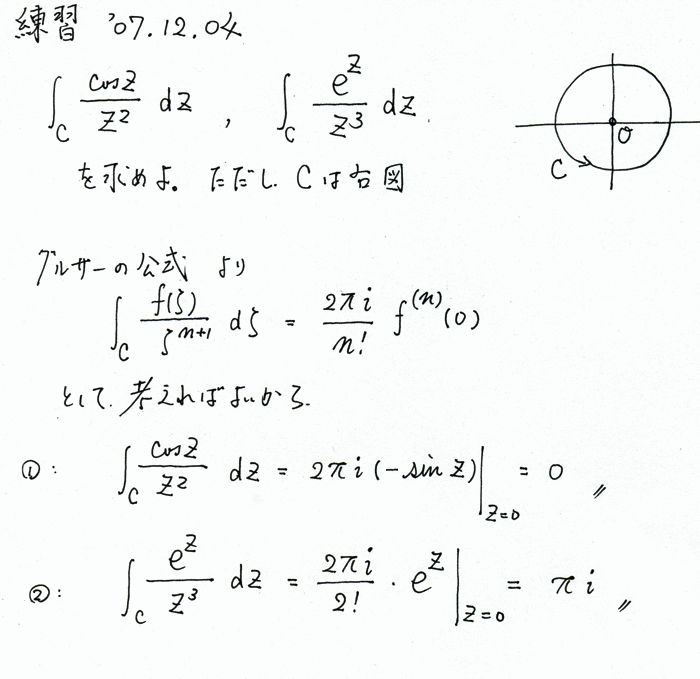 練習 '07.12.04
∫_C cosz/z² dz , ∫_C e^z/z³ dz.
を求めよ。ただし Cは右図
O
C
グルサーの公式 より
∫_C f(ζ)/ζ^(n+1) dζ = 2πi/n! f^(n)(0)
として 考えればよいから.
①: ∫_C cosz/z² dz = 2πi(-sin z)|_z=0 = 0 〃
②: ∫_C e^z/z³ dz = 2πi/2! · e^z|_z=0 = πi 〃